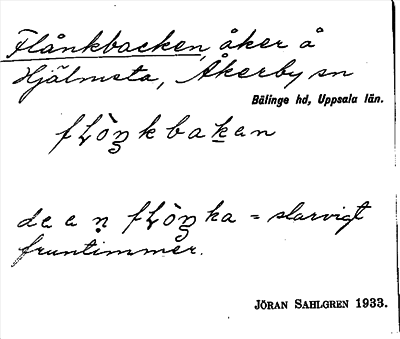 Flånkbacken, åker å
Hjälmsta, Åkerby sn
Bälinge hd, Uppsala län.
fɫòŋkbakan
de e n fɫòŋka = slarvigt
fruntimmer.
JÖRAN SAHLGREN 1933.